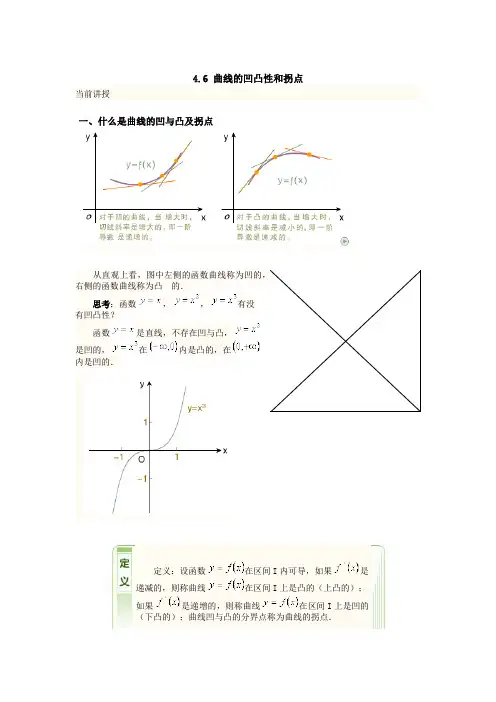 4.6 曲线的凹凸性和拐点
当前讲授
一、什么是曲线的凹与凸及拐点
y
y=f(x)
O
x
对于凹的曲线，当 增大时，
切线斜率是增大的，即一阶
导数 是递增的。
y
y=f(x)
O
x
对于凸的曲线，当增大时，
切线斜率是减小的，即一阶
导数是递减的。
从直观上看，图中左侧的函数曲线称为凹的，
右侧的函数曲线称为凸 的．
思考：函数 y = x ， y = x² ， y = x³ 有没
有凹凸性？
函数 y = x 是直线，不存在凹与凸． y = x²
是凹的， y = x³ 在 (-∞,0) 内是凸的，在 (0,+∞)
内是凹的．
y
y=x³
1
-1
O
1
x
-1
定义
定义：设函数 y = f(x) 在区间 I 内可导，如果 f'(x) 是
递减的，则称曲线 y = f(x) 在区间 I 上是凸的（上凸的）；
如果 f'(x) 是递增的，则称曲线 y = f(x) 在区间 I 上是凹的
（下凸的）；曲线凹与凸的分界点称为曲线的拐点．